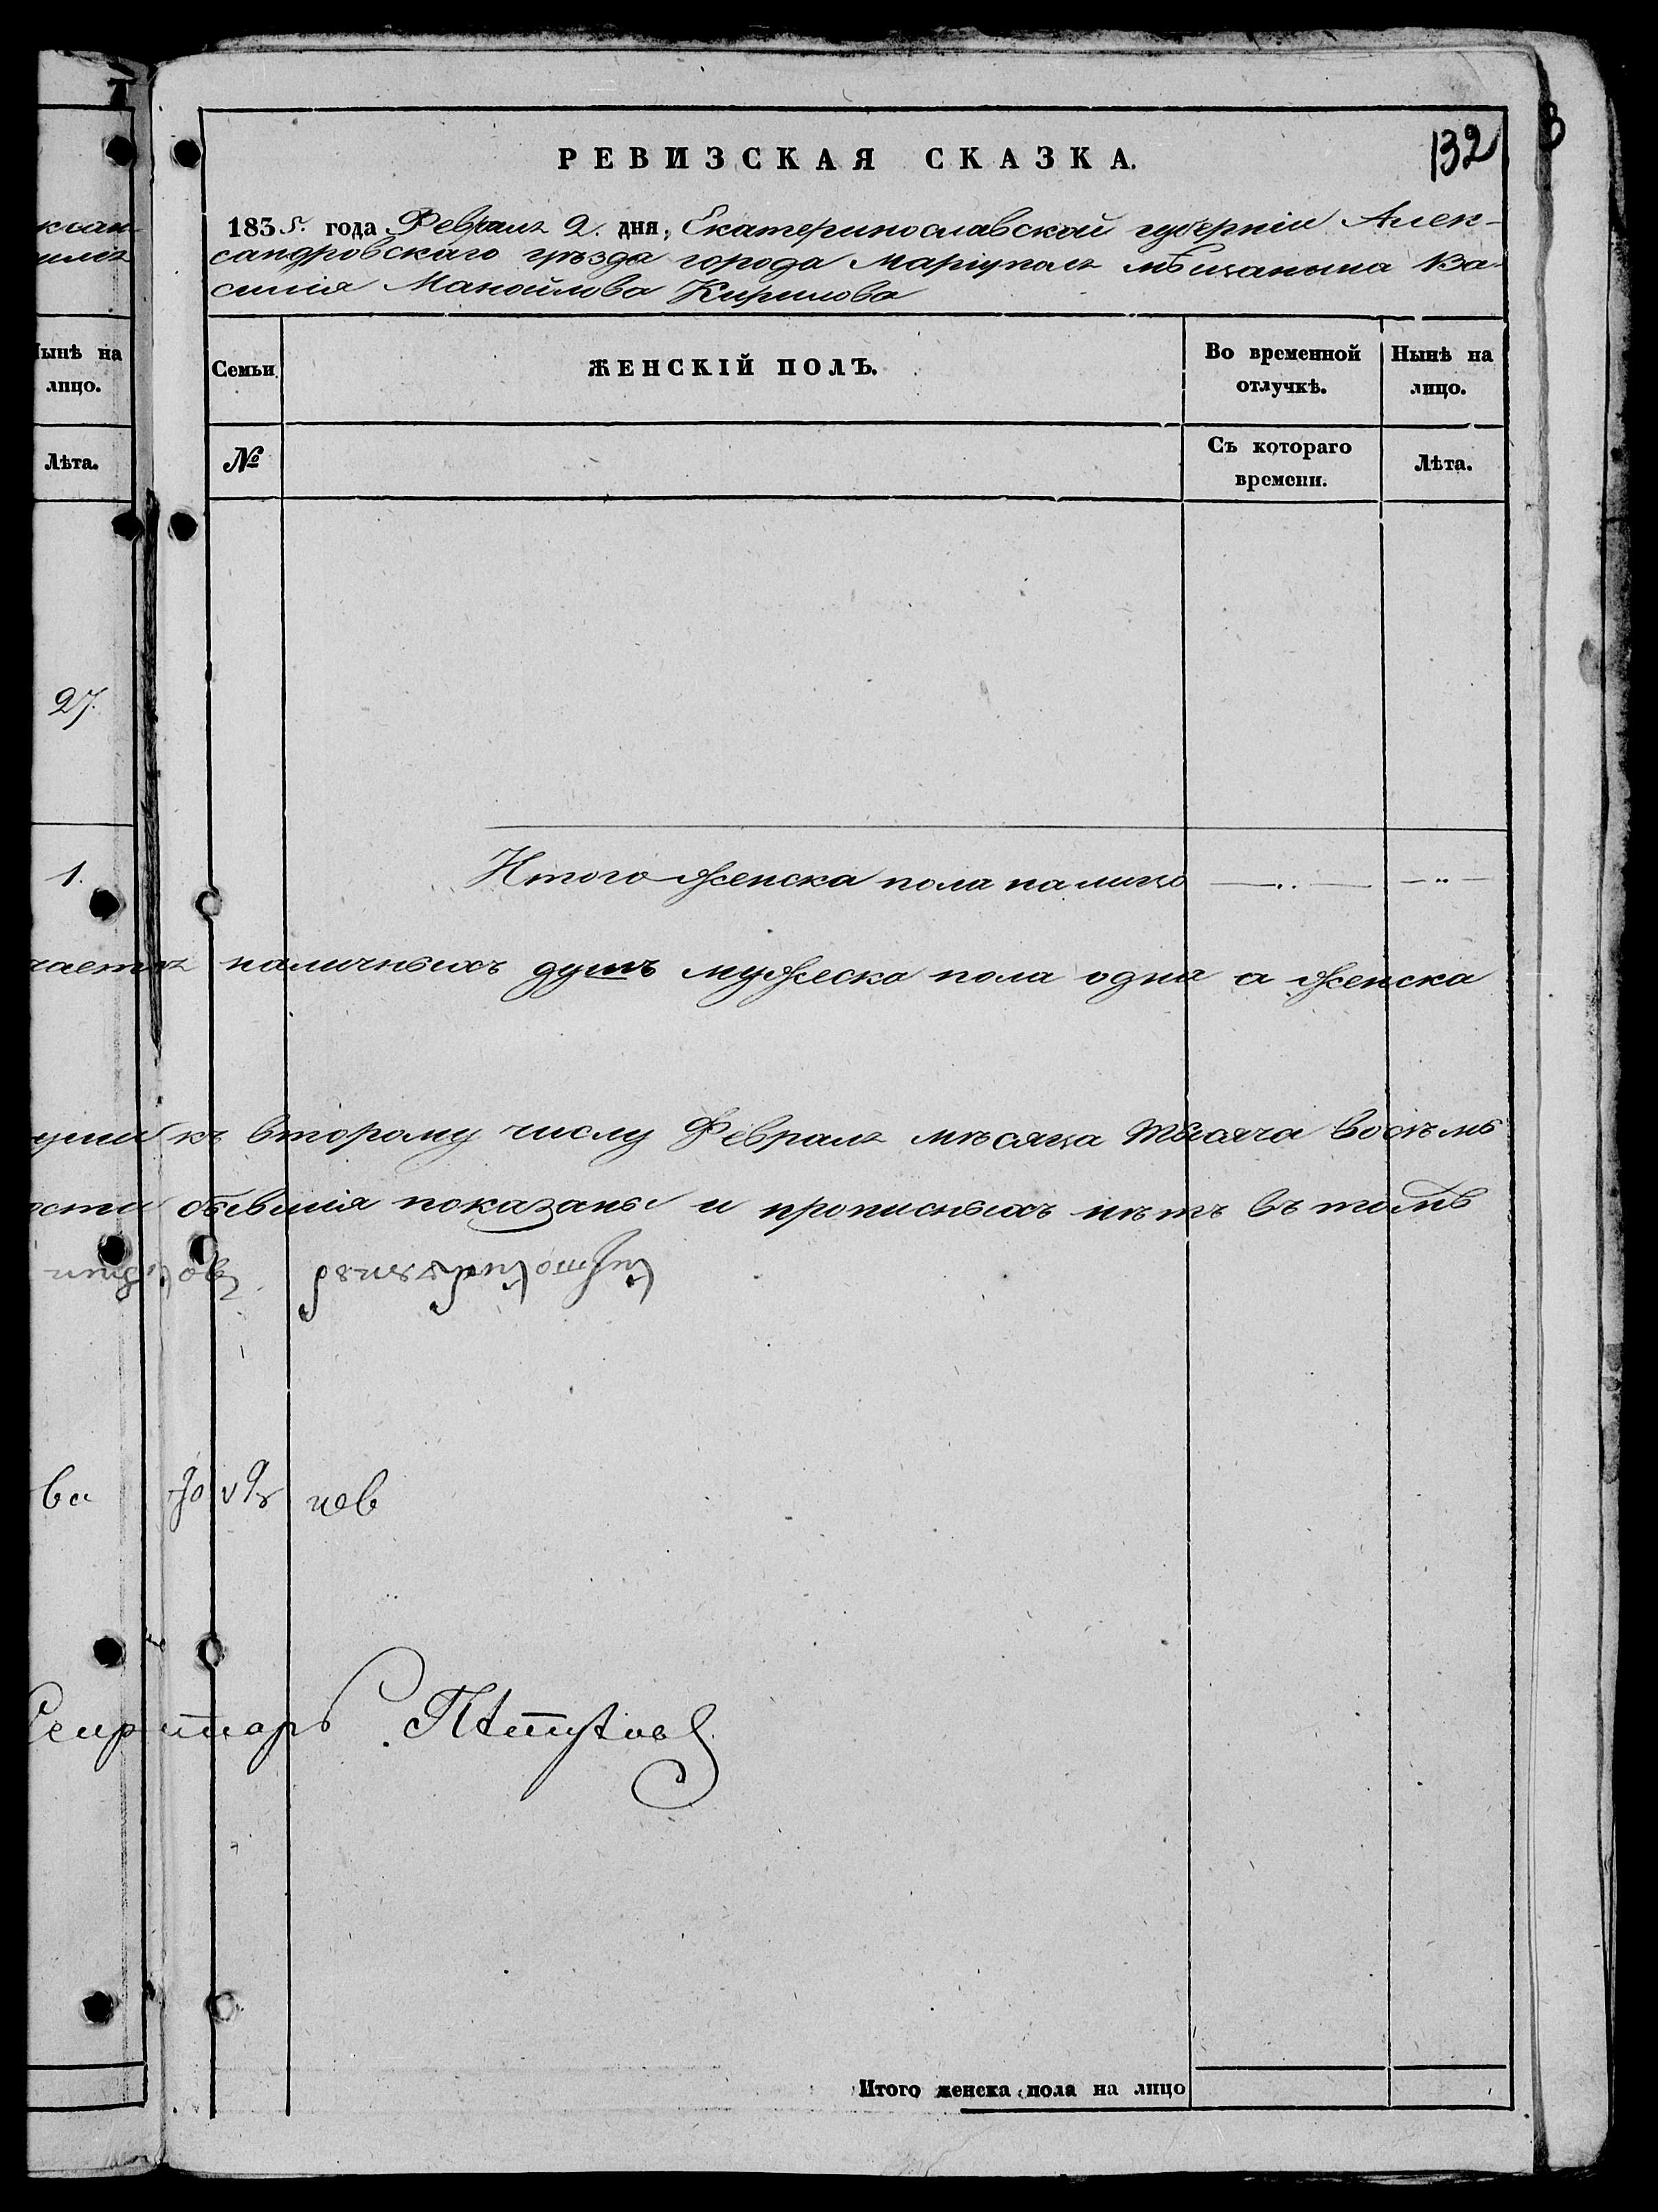 132
РЕВИЗСКАЯ СКАЗКА.
1835. года Февраля 2. дня, Екатеринославской губерніи Алек-
сандровскаго уѣзда города Маріуполя мѣщанина Ва-
силія Манойлова Кирилова
Нынѣ на лицо.
Лѣта.
27.
1.
Семьи
ЖЕНСКІЙ ПОЛЪ.
Во временной отлучкѣ.
Нынѣ на лицо.
№
Съ котораго времени.
Лѣта.
Итого женска пола на лицо — „ — — „ —
наличныхъ душъ мужеска пола одна а женска
къ второму числу Февраля мѣсяца тысяча восемь
обывшія показаны и прописныхъ нѣтъ въ томъ
Секретарь
Итого женска пола на лицо